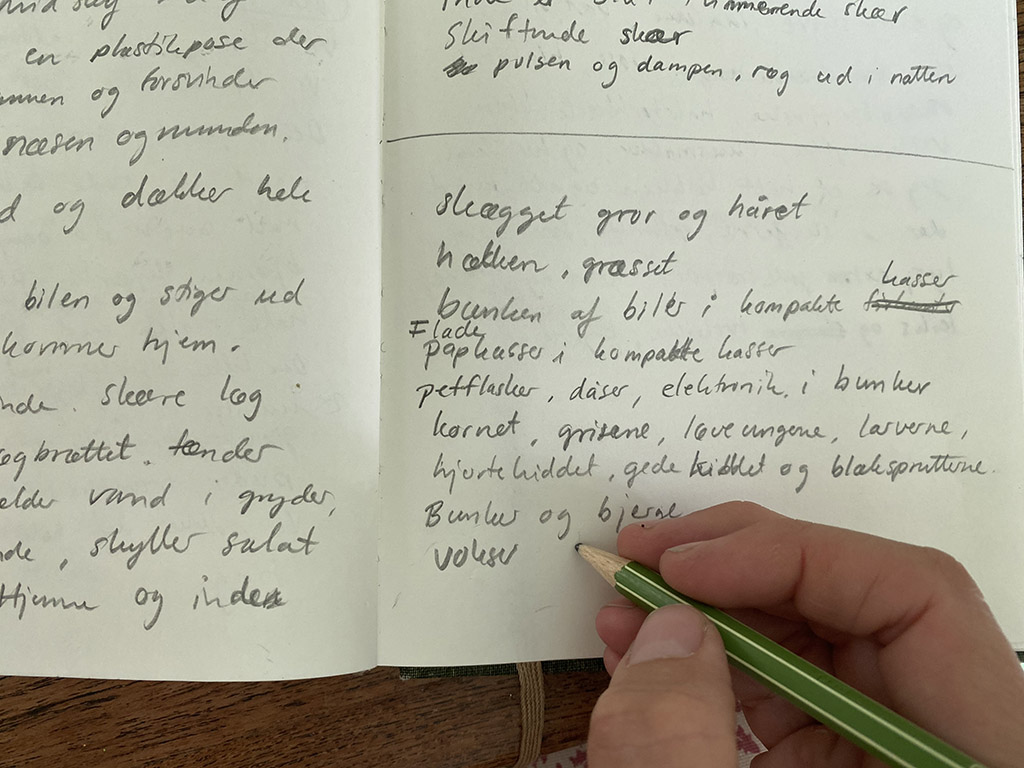 en plastikpose der
og forsvinder
næsen og munden.
og dækker hele
bilen og stiger ud
kommer hjem.
skære løg
tænder
vand i gryder,
skyller salat
Hjemme og inden
skær
Skiftende skær
pulsen og dampen, røg ud i natten
skægget gror og håret
hækken, græsset
kasser
bunken af biler i kompakte
Flade
papkasser i kompakte kasser
petflasker, dåser, elektronik, i bunker
kornet, grisene, løveungerne, larverne,
hjortekiddet, gedekiddet og blæksprutterne.
Bunker og bjerge
vokser